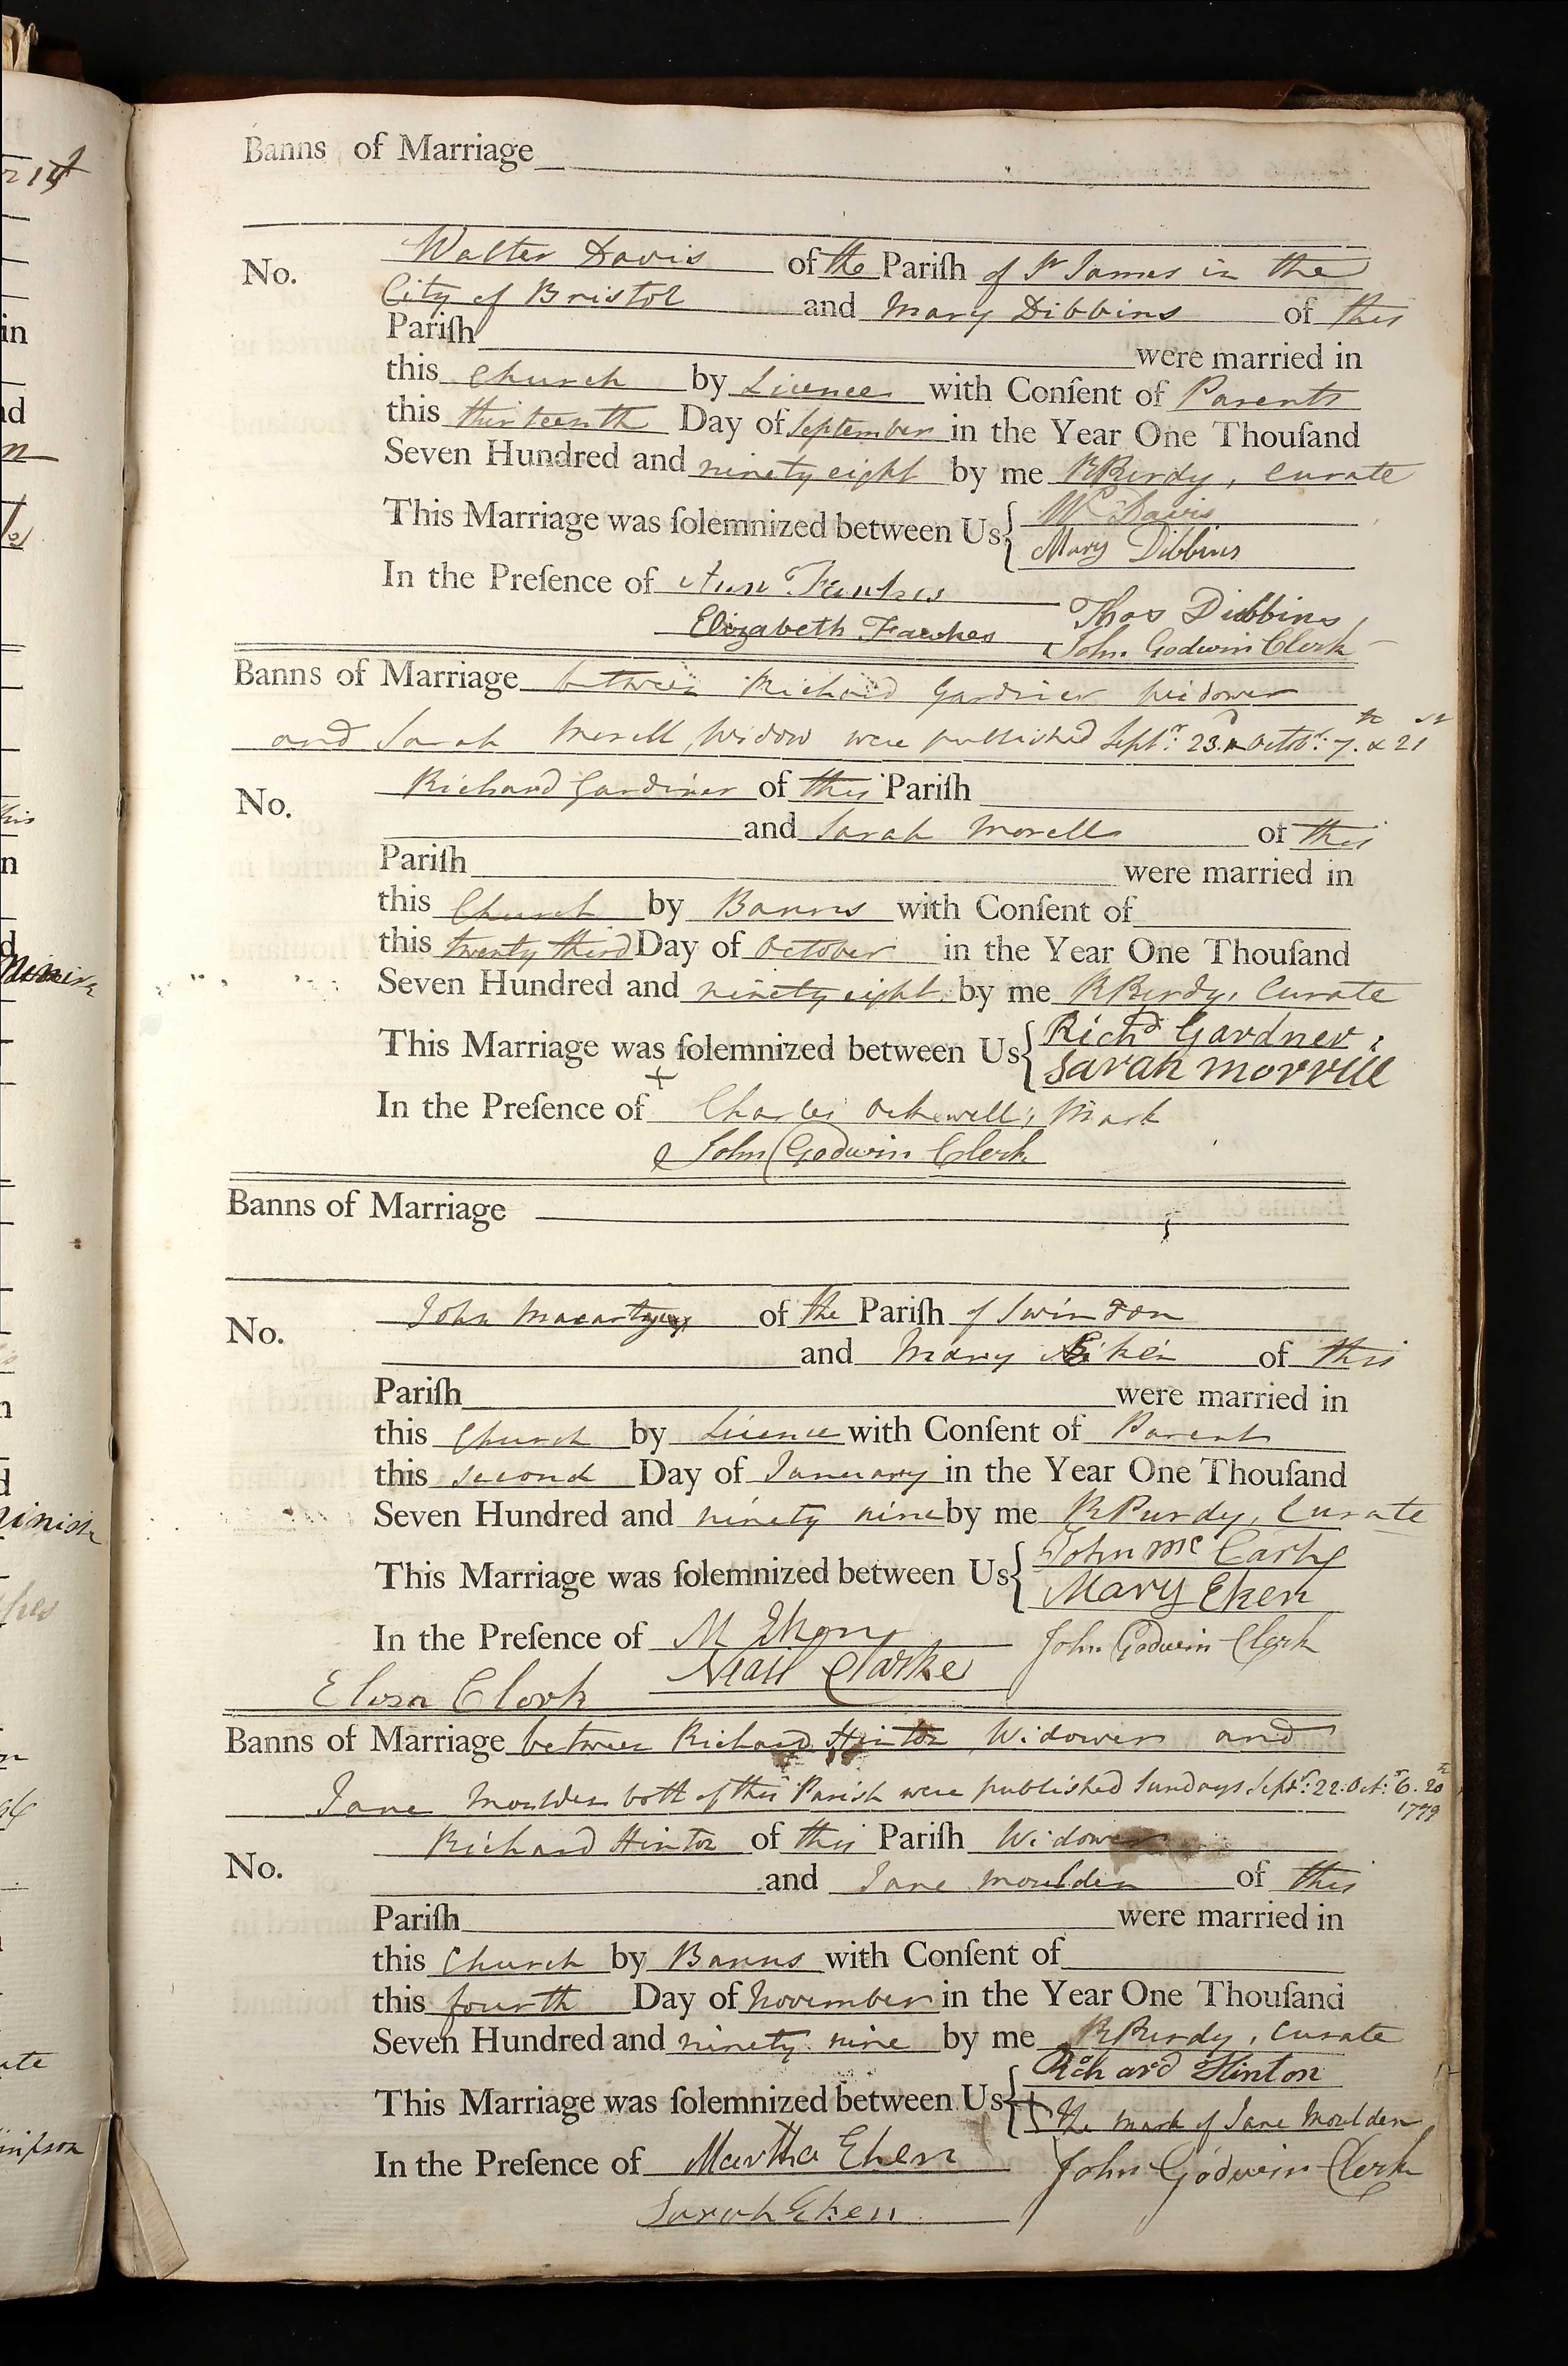 Banns of Marriage
No. Walter Davis of the Pariſh of St James in the
City of Bristol and Mary Dibbins of this
Pariſh were married in
this Church by Licence with Conſent of Parents
this thirteenth Day of September in the Year One Thouſand
Seven Hundred and ninety eight by me R Purdy, Curate
This Marriage was ſolemnized between Us { Davis
Mary Dibbins
In the Preſence of Ann Fawkes
Thos Dibbins
Elizabeth Fawkes John Godwin Clerk
Banns of Marriage between Richard Gardiner widower
and Sarah Morell, Widow were published Septr: 23.d Octobr: 7.th & 21st
No. Richard Gardiner of this Pariſh
and Sarah Morell of this
Pariſh were married in
this Church by Banns with Conſent of
this twenty third Day of October in the Year One Thouſand
Seven Hundred and ninety eight by me R Purdy, Curate
This Marriage was ſolemnized between Us { Richd Gardner
Sarah Morrill
In the Preſence of + Charles Ockwell's Mark
John Godwin Clerk
Banns of Marriage
No. John of the Pariſh of Swindon
and Mary of this
Pariſh were married in
this Church by Licence with Conſent of Parents
this second Day of January in the Year One Thouſand
Seven Hundred and ninety nine by me R Purdy, Curate
This Marriage was ſolemnized between Us { John Mc Carty
Mary Eken
In the Preſence of M Eken John Godwin Clerk
Neail Clarke
Clark
Banns of Marriage between Richard Hinton Widower and
Jane Moulden both of this Parish were published Sundays Septr: 22. Octr: 6. 20th
1799
No. Richard Hinton of this Pariſh Widower
and Jane Moulden of this
Pariſh were married in
this Church by Banns with Conſent of
this fourth Day of November in the Year One Thouſand
Seven Hundred and ninety nine by me R Purdy, Curate
This Marriage was ſolemnized between Us { Richard Hinton
+ The mark of Jane Moulden
In the Preſence of Martha Eken John Godwin Clerk
Sarah Eken